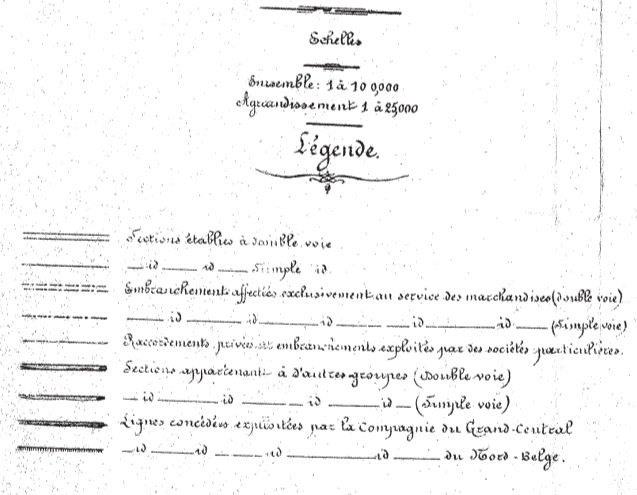 Echelles
Ensemble: 1 à 100,000
Agrandissement 1 à 25,000
Légende.
Sections établies à double voie
id id Simple id.
Embranchements affectés exclusivement au service des marchandises (double voie)
id id id id id (Simple voie)
Raccordements privés et embranchements exploités par des sociétés particulières.
Sections appartenant à d'autres groupes (Double voie)
id id id id (Simple voie)
Lignes concédées exploitées par la Compagnie du Grand-Central
id id id id du Nord-Belge.